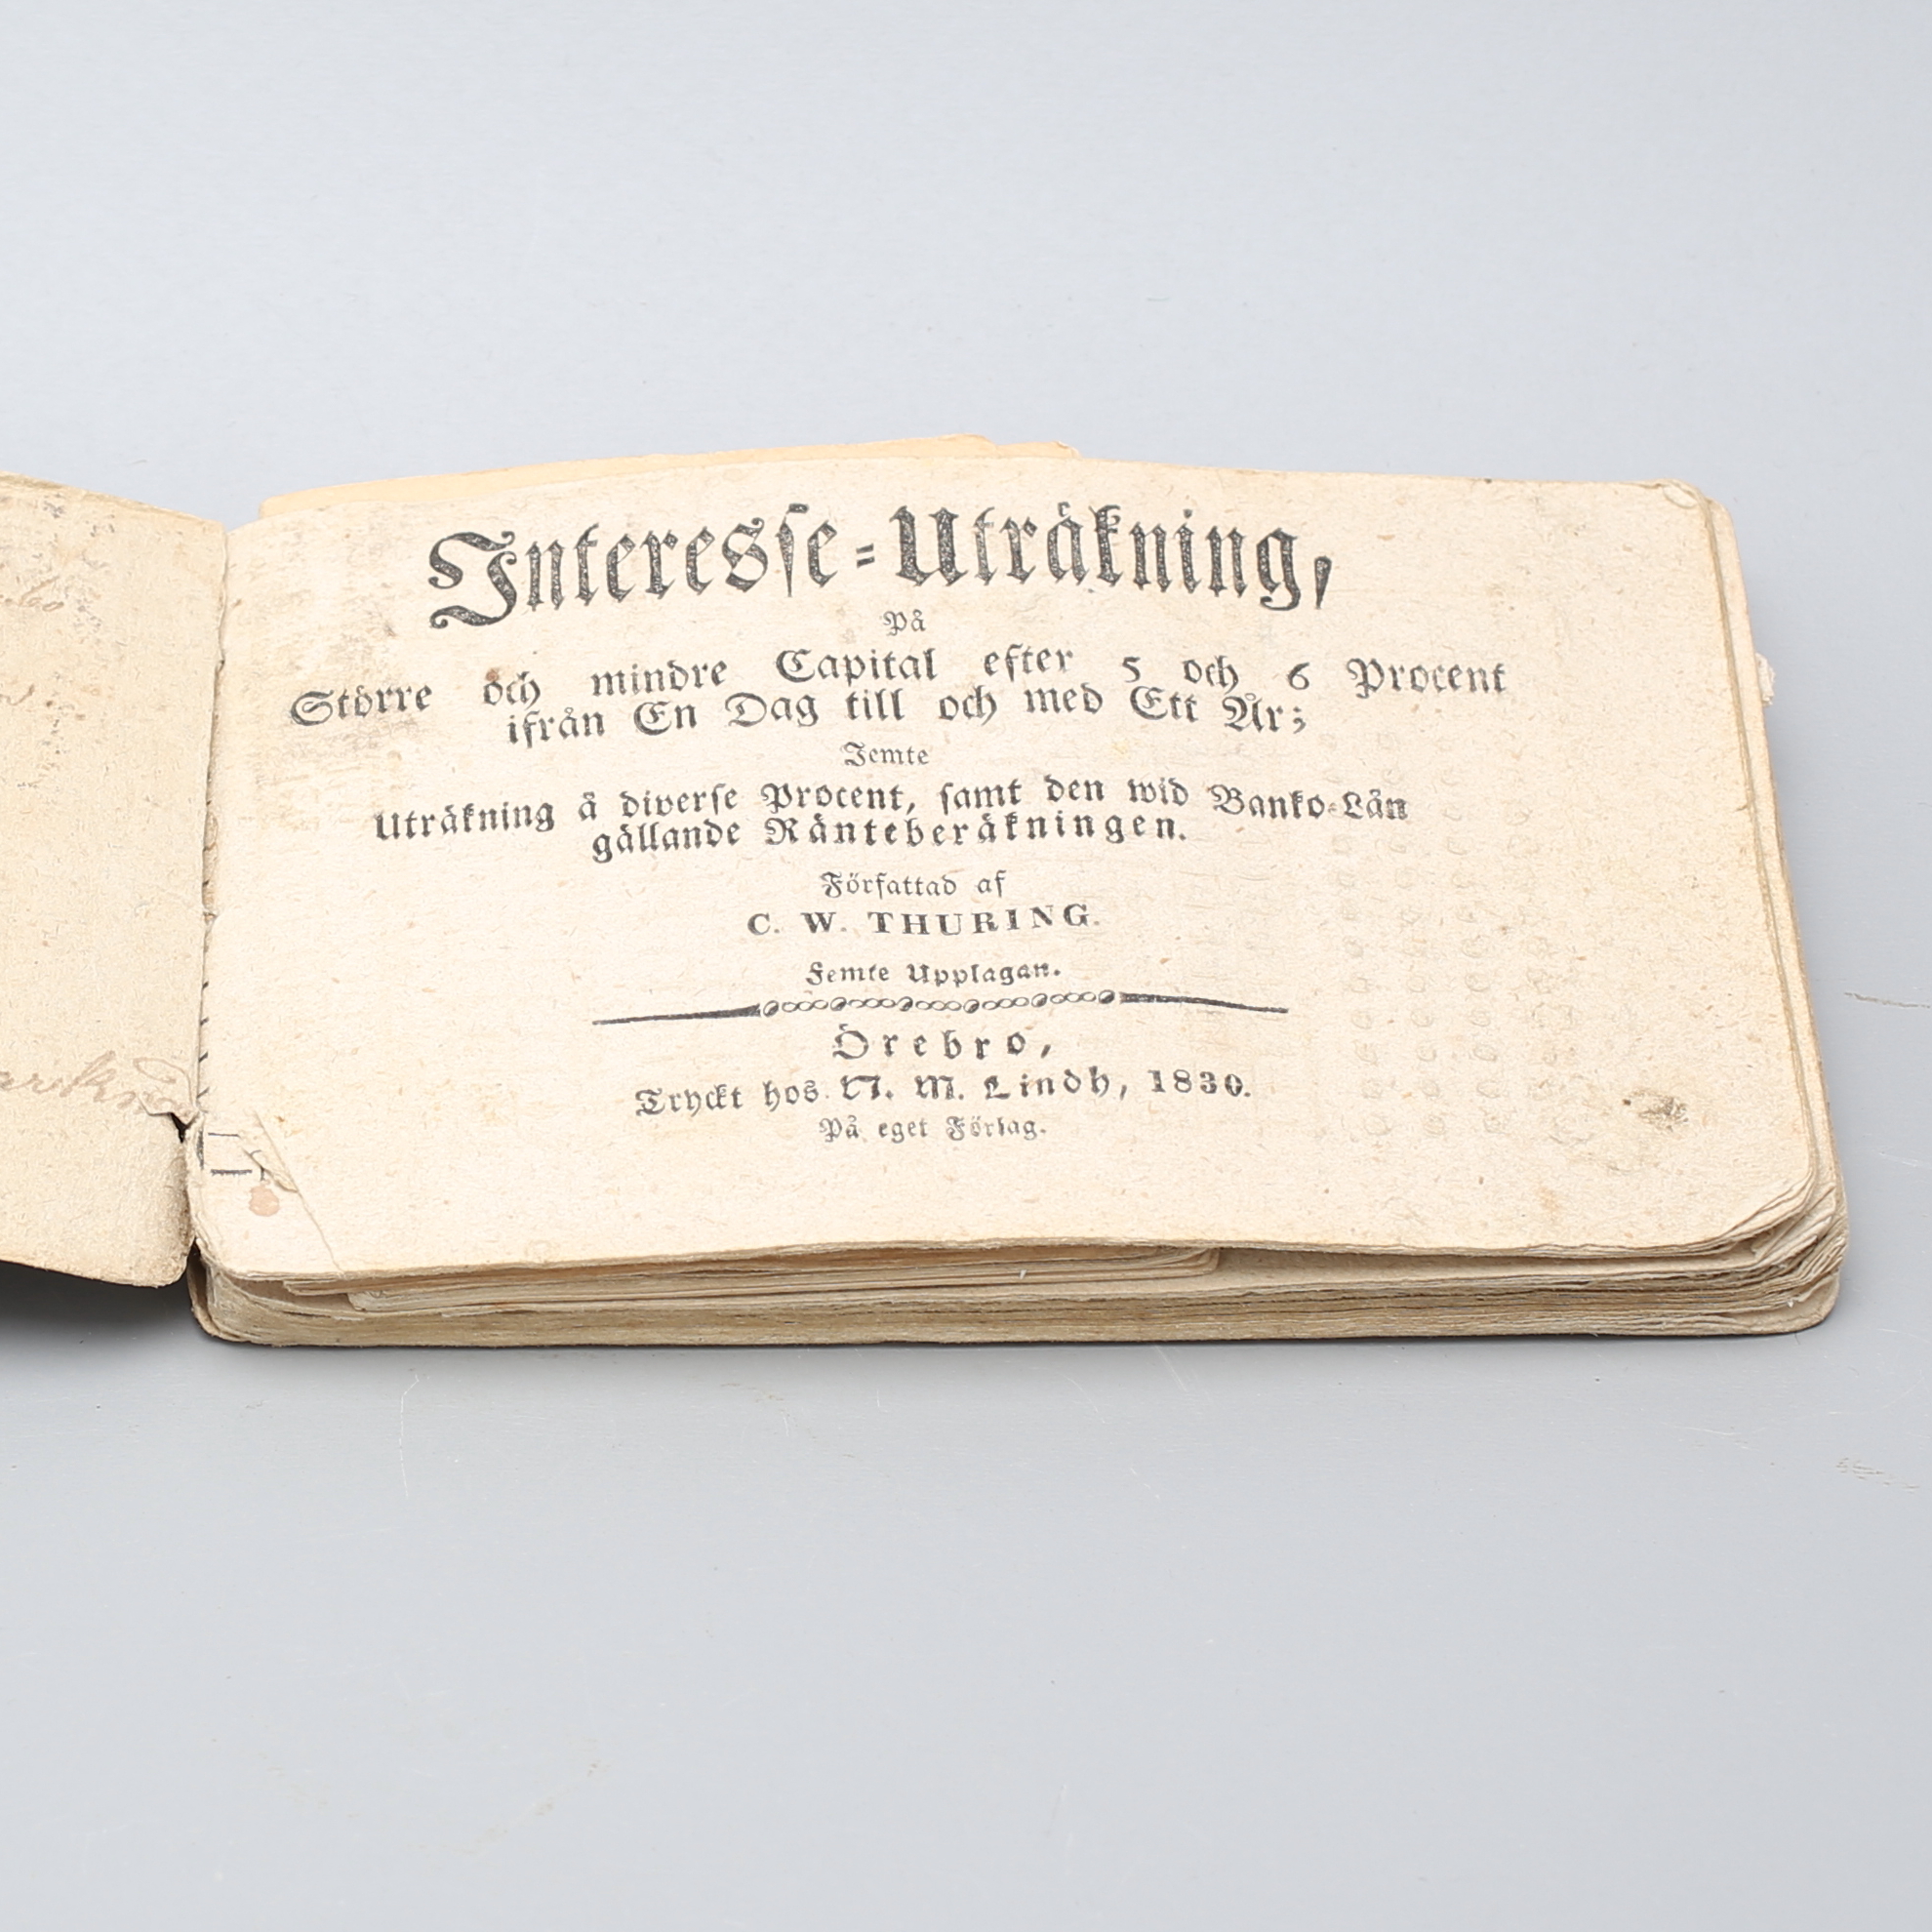 Interesse-Uträkning,
På
Större och mindre Capital efter 5 och 6 Procent
ifrån En Dag till och med Ett År;
Jemte
Uträkning à diverse Procent, samt den wid Banko-Lån
gällande Ränteberäkningen.
Författad af
C. W. THURING.
Femte Upplagan.
Örebro,
Tryckt hos N. M. Lindh, 1830.
På eget Förlag.